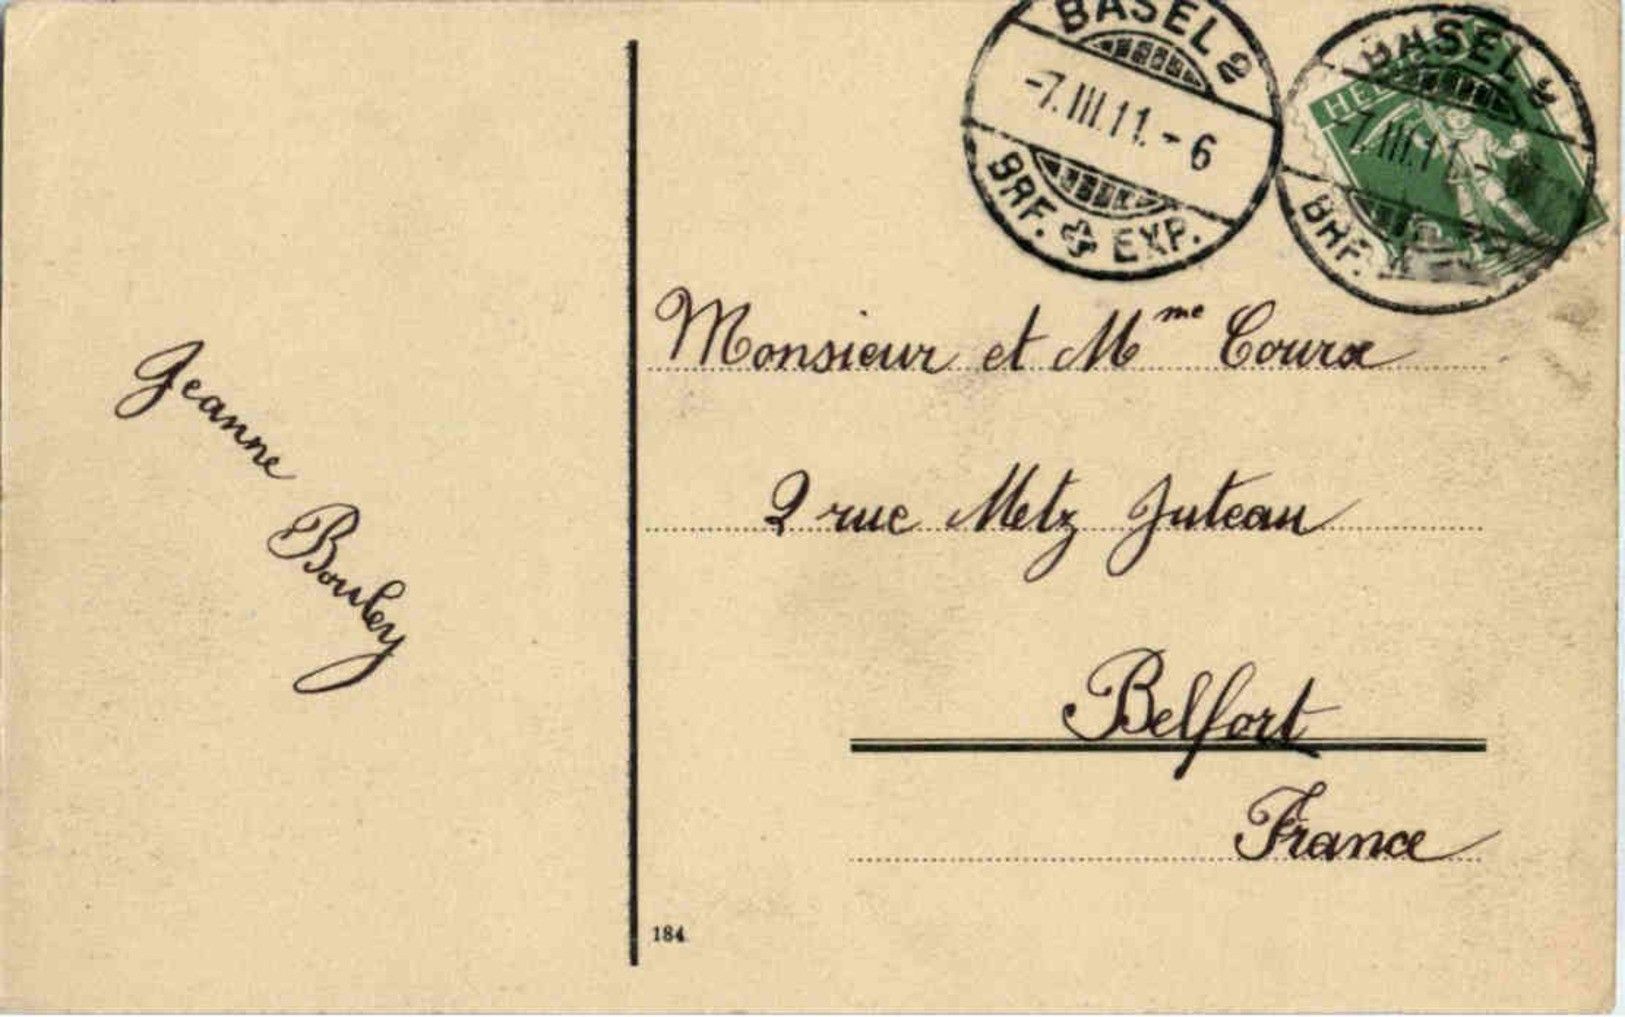 BASEL 2
-7.III.11.-6
BRF. & EXP.
BASEL 2
-7.III.11.-
BRF.
HEL
Monsieur et Mme
2 rue Metz Juteau
Belfort
France
Jeanne
Bouley
184